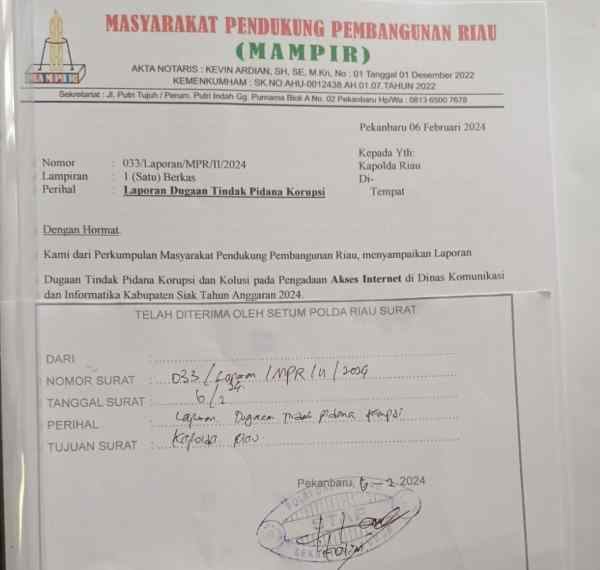 MASYARAKAT PENDUKUNG PEMBANGUNAN RIAU
(MAMPIR)
MAMPIR
AKTA NOTARIS : KEVIN ARDIAN, SH, SE, M.Kn, No : 01 Tanggal 01 Desember 2022
KEMENKUMHAM : SK.NO.AHU-0012438.AH.01.07.TAHUN 2022
Sekretariat : Jl. Putri Tujuh / Perum. Putri Indah Gg. Purnama Blok A No. 02 Pekanbaru Hp/Wa : 0813 6500 7678
Pekanbaru 06 Februari 2024
Kepada Yth:
Nomor : 033/Laporan/MPR/II/2024 Kapolda Riau
Lampiran : 1 (Satu) Berkas Di-
Perihal : Laporan Dugaan Tindak Pidana Korupsi Tempat
Dengan Hormat.
Kami dari Perkumpulan Masyarakat Pendukung Pembangunan Riau, menyampaikan Laporan
Dugaan Tindak Pidana Korupsi dan Kolusi pada Pengadaan Akses Internet di Dinas Komunikasi
dan Informatika Kabupaten Siak Tahun Anggaran 2024.
TELAH DITERIMA OLEH SETUM POLDA RIAU SURAT
DARI :
NOMOR SURAT : 033/Laporan/MPR/II/2024
TANGGAL SURAT : 6/2 24
PERIHAL : Laporan Dugaan Tindak Pidana Korupsi
TUJUAN SURAT : Kapolda Riau
Pekanbaru, 6-2 2024
STAF